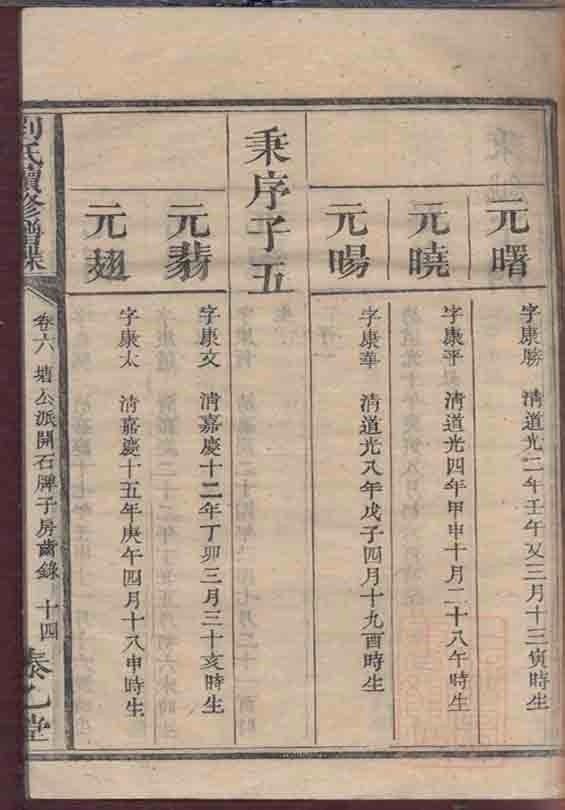 元曙
字康勝 清道光二年壬午又三月十三寅時生
元曉
字康平 清道光四年甲申十月二十八午時生
元暘
字康華 清道光八年戊子四月十九酉時生
秉序子五
元翡
字康文 清嘉慶十二年丁卯三月三十亥時生
元翅
字康太 清嘉慶十五年庚午四月十八申時生
劉氏續修譜牒
卷六 塘公派開石牌子房齒錄 十四
泰乙堂